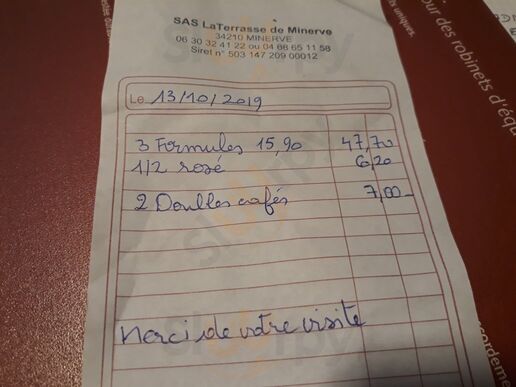 SAS LaTerrasse de Minerve
34210 MINERVE
06 30 32 41 22 ou 04 68 65 11 58
Siret n° 503 147 209 00012
Le 13/10/2019
3 Formules 15,90 47,70
1/2 rosé 6,20
2 Doubles cafés 7,00
Merci de votre visite
uniques.
our des robinets d'équ
cordeme